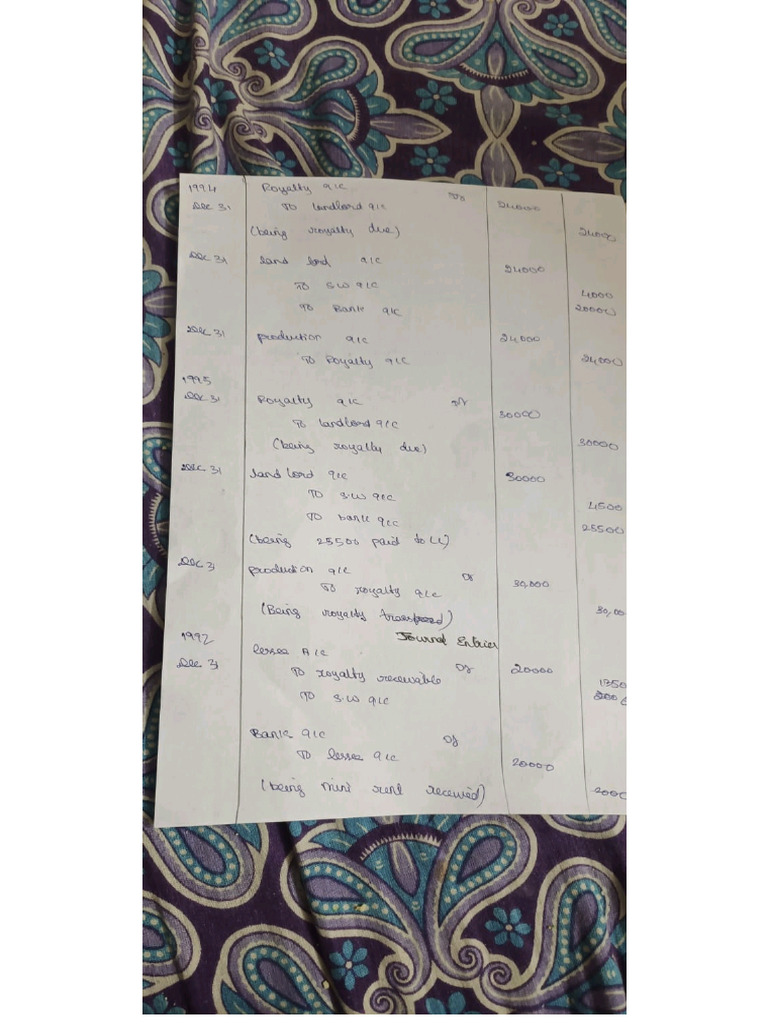 1994 Royalty a/c Dr
Dec 31 To landlord a/c 24000
(being royalty due) 2400
Dec 31 land lord a/c 24000
To S.W a/c 4000
To Bank a/c 20000
Dec 31 production a/c 24000
To Royalty a/c 24000
1995
Dec 31 Royalty a/c Dr 30000
To landlord a/c
(being royalty due) 30000
Dec 31 land lord a/c 30000
To S.W a/c 4500
To bank a/c 25500
(being 25500 paid to LL)
Dec 31 production a/c Dr 30,000
To royalty a/c
(Being royalty) 30,00
Journal Entries
1992 lessee A/c Dr 20000
Dec 31 To royalty receivable 1350
To S.W a/c
Bank a/c Dr 20000
To lessee a/c
(being mini rent received) 2000